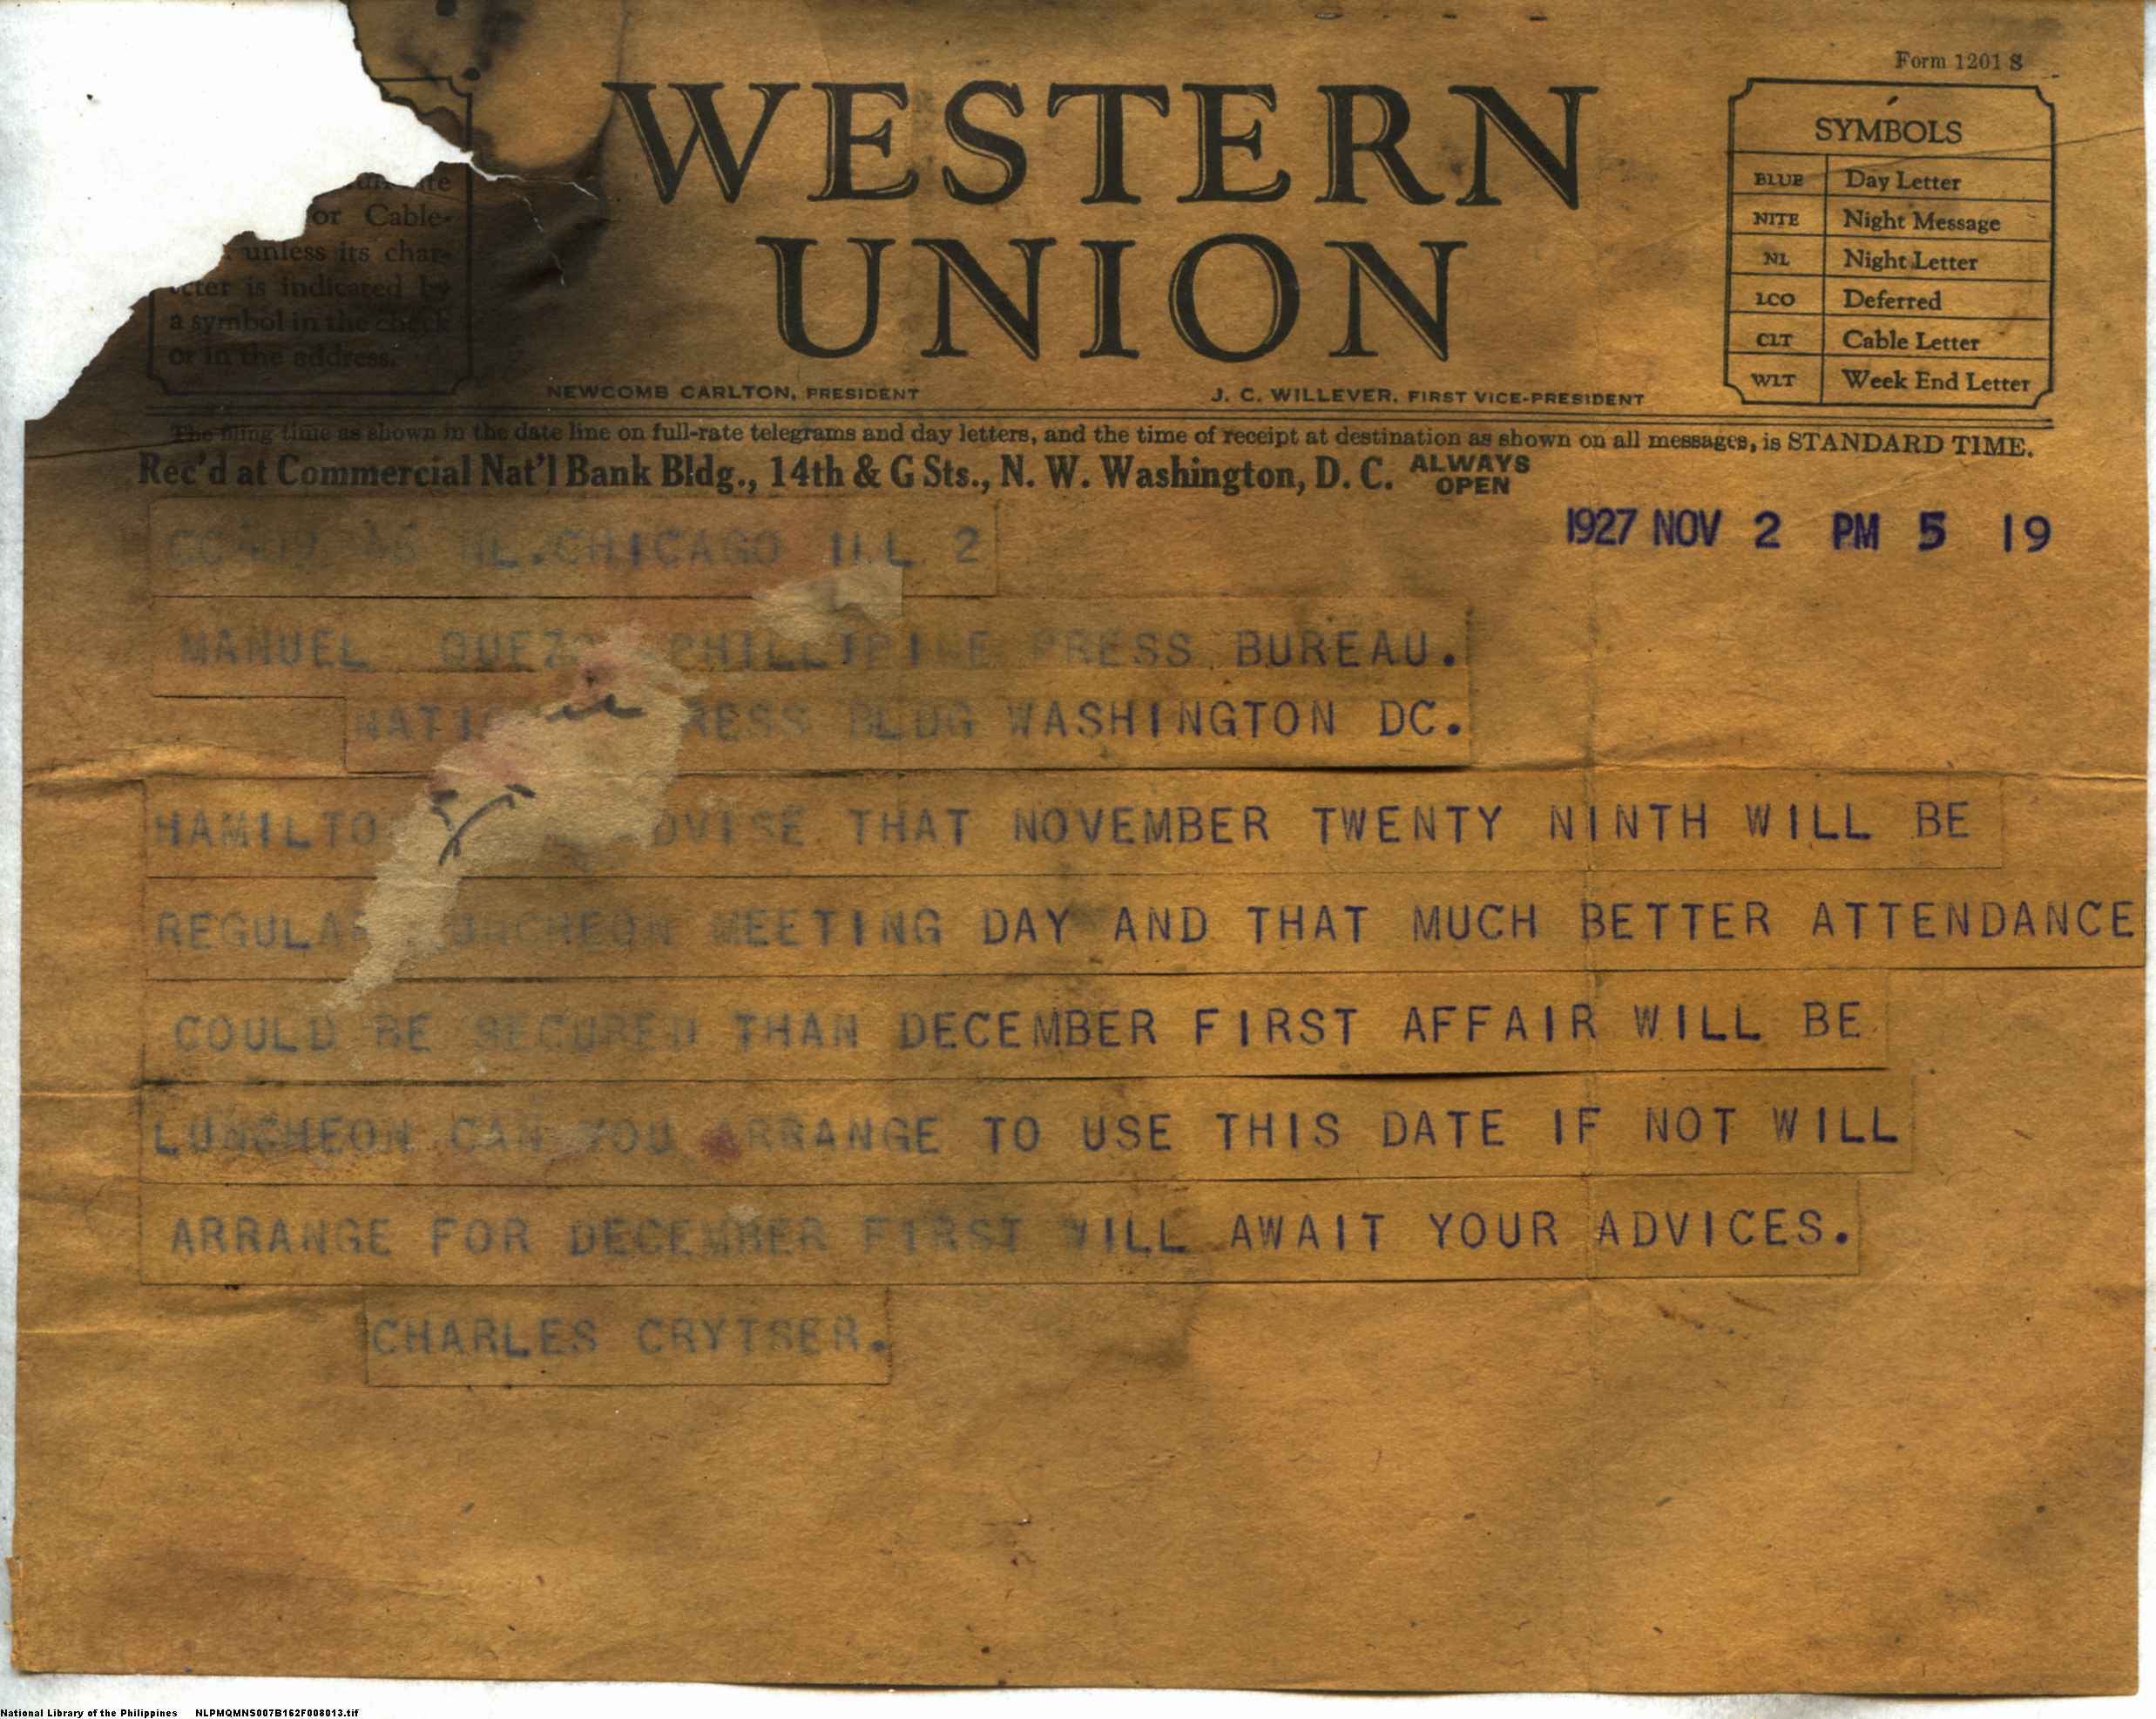 Form 1201 S
or Cable-
unless its char-
is indicated by
a symbol in the check
or in the address.
WESTERN
UNION
SYMBOLS
BLUE Day Letter
NITE Night Message
NL Night Letter
LCO Deferred
CLT Cable Letter
WLT Week End Letter
NEWCOMB CARLTON, PRESIDENT J. C. WILLEVER, FIRST VICE-PRESIDENT
The filing time as shown in the date line on full-rate telegrams and day letters, and the time of receipt at destination as shown on all messages, is STANDARD TIME.
Rec'd at Commercial Nat'l Bank Bldg., 14th & G Sts., N. W. Washington, D. C. ALWAYS OPEN
1927 NOV 2 PM 5 19
CHICAGO ILL 2
MANUEL PHILLIPINE PRESS BUREAU.
BLDG WASHINGTON DC.
THAT NOVEMBER TWENTY NINTH WILL BE
MEETING DAY AND THAT MUCH BETTER ATTENDANCE
COULD BE SECURED THAN DECEMBER FIRST AFFAIR WILL BE
LUNCHEON CAN YOU ARRANGE TO USE THIS DATE IF NOT WILL
ARRANGE FOR DECEMBER FIRST WILL AWAIT YOUR ADVICES.
CHARLES CRYTSER.
National Library of the Philippines NLPMQMNS007B162F008013.tif